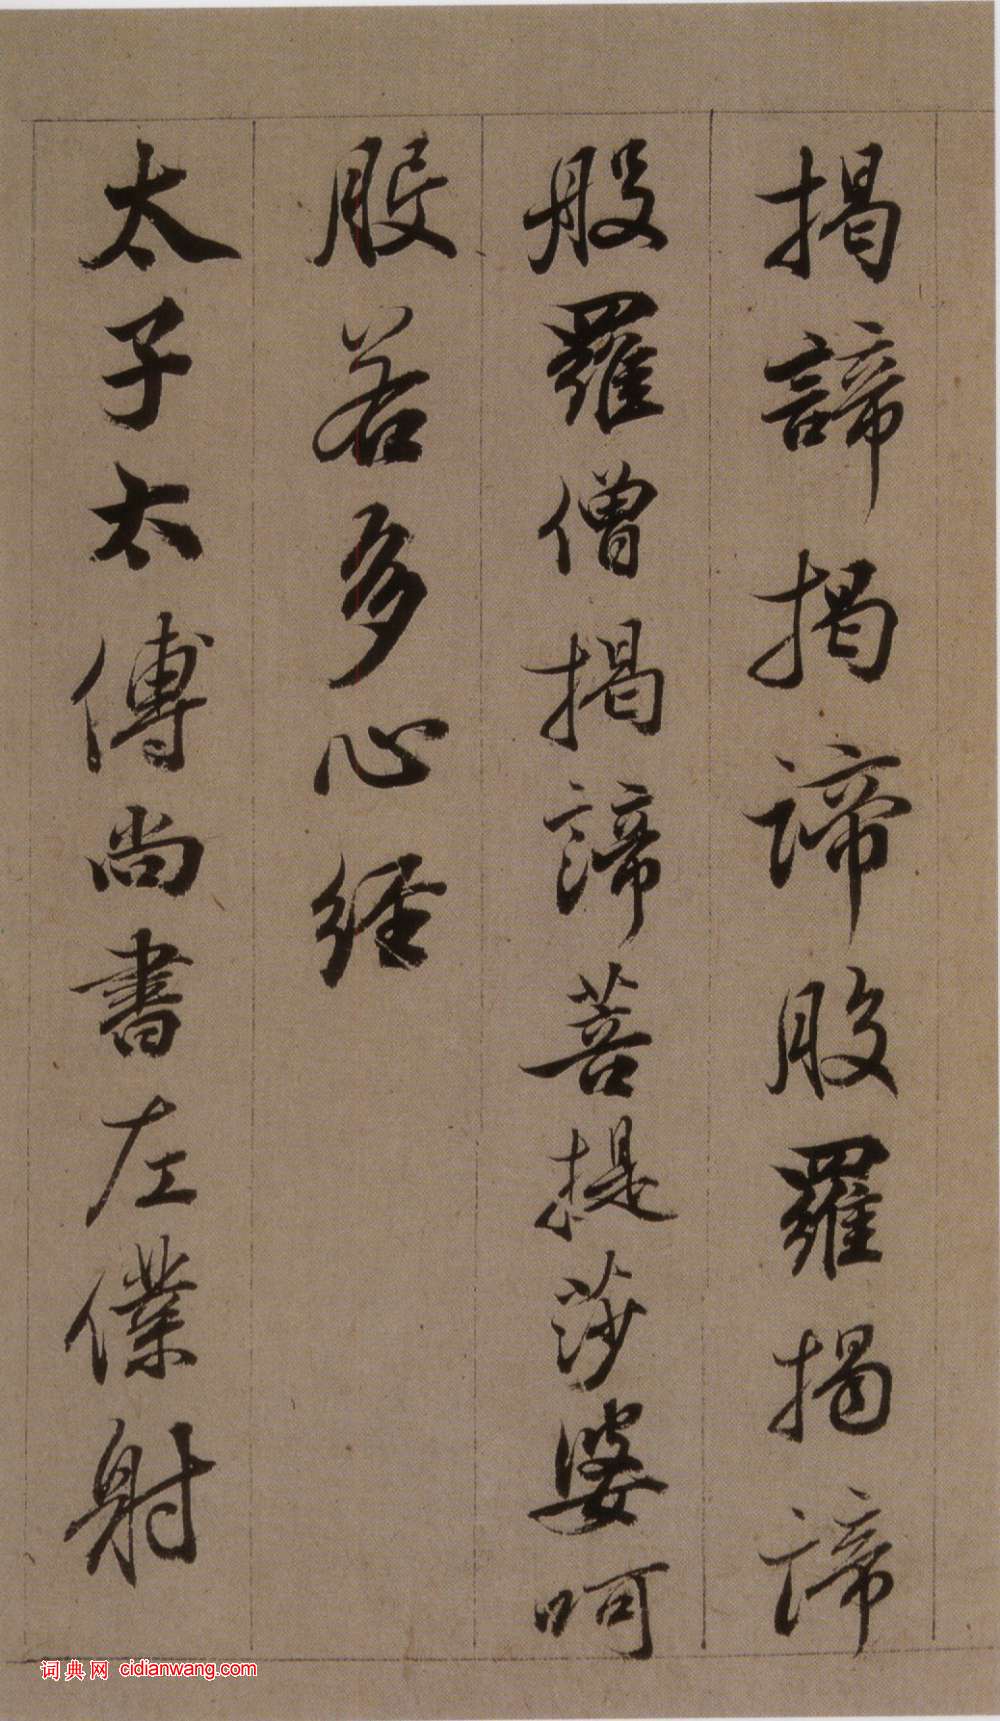 揭諦揭諦般羅揭諦
般羅僧揭諦菩提莎婆呵
般若多心經
太子太傅尚書左僕射
词典网 cidianwang.com